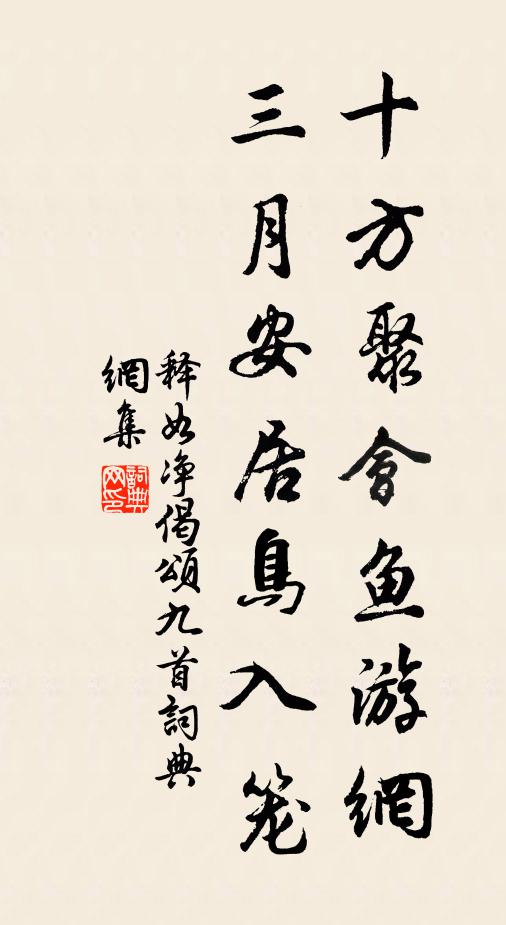 十方聚會鱼游網
三月安居鳥入笼
释如净偈頌九首詞典
網集
詞典网印